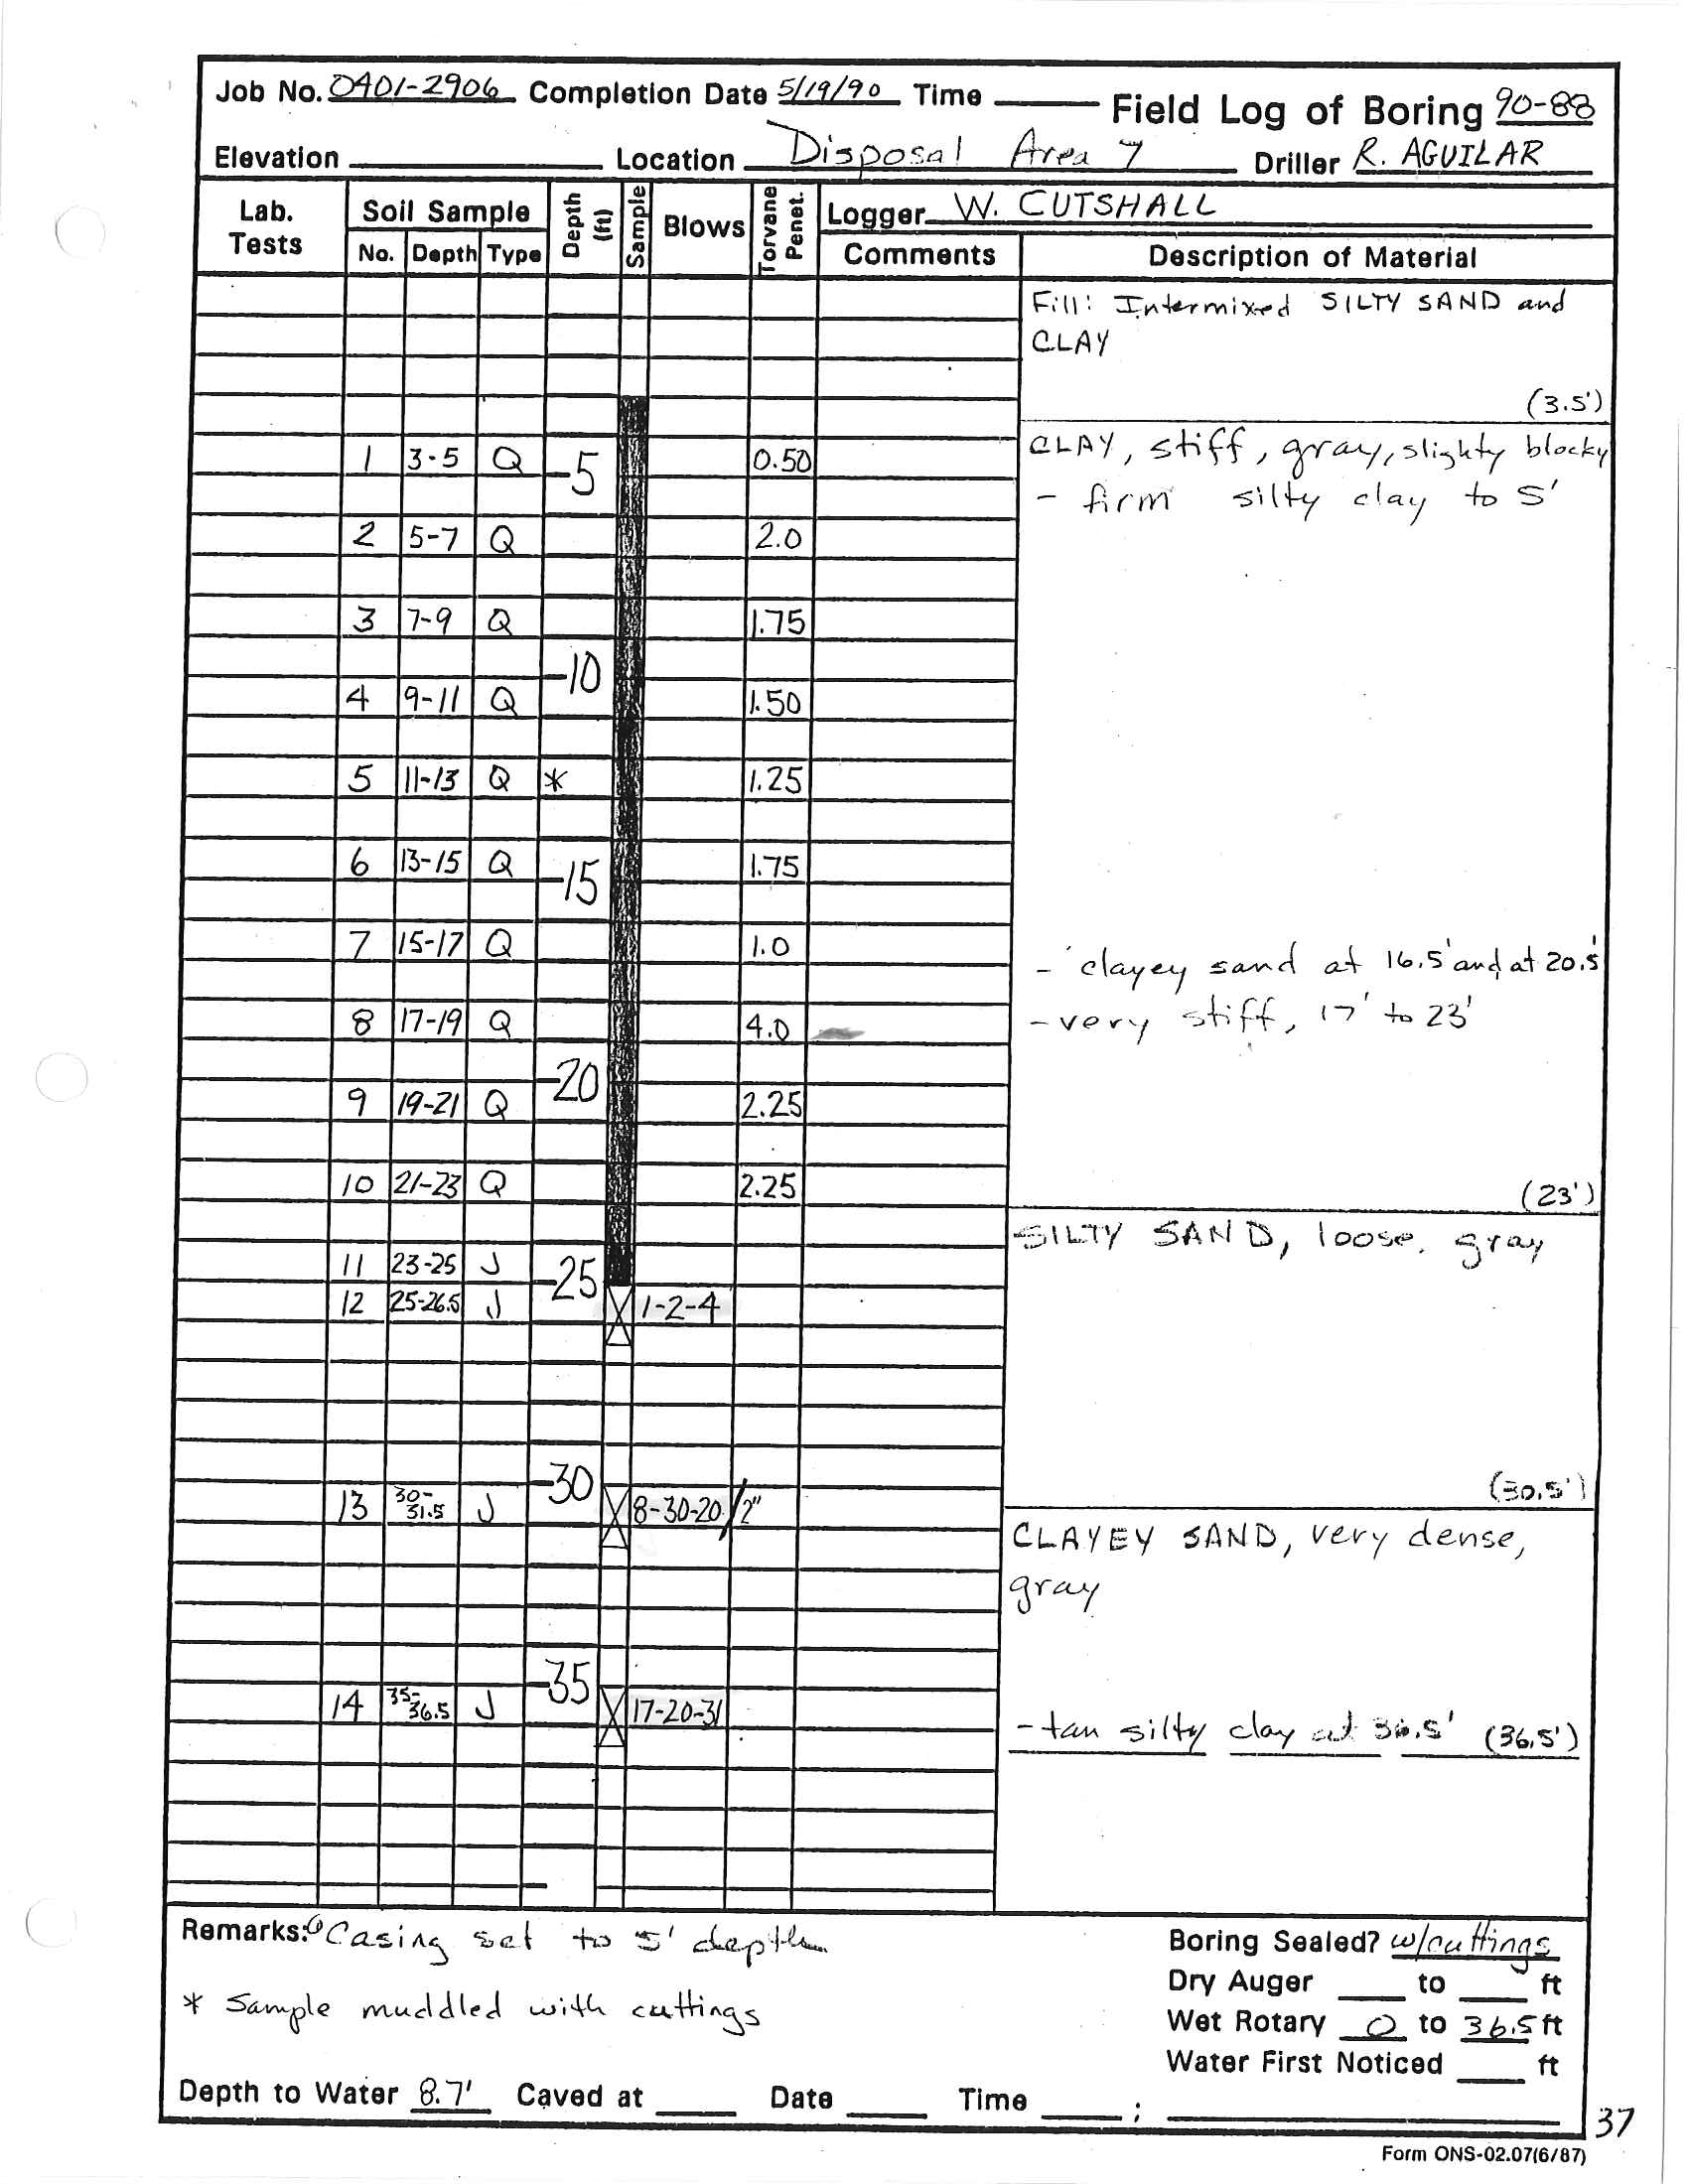 Job No. 0401-2906 Completion Date 5/19/90 Time Field Log of Boring 90-88
Elevation Location Disposal Area 7 Driller R. AGUILAR
Lab. Tests Soil Sample Depth (ft) Sample Blows Torvane Penet. Logger W. CUTSHALL
No. Depth Type Comments Description of Material
Fill: Intermixed SILTY SAND and
CLAY
(3.5')
CLAY, stiff, gray, slighty blocky
1 3-5 Q -5 0.50
- firm silty clay to 5'
2 5-7 Q 2.0
3 7-9 Q 1.75
-10
4 9-11 Q 1.50
5 11-13 Q * 1.25
6 13-15 Q -15 1.75
7 15-17 Q 1.0
- clayey sand at 16.5' and at 20.5'
8 17-19 Q 4.0 - very stiff, 17' to 23'
-20
9 19-21 Q 2.25
10 21-23 Q 2.25 (23')
SILTY SAND, loose, gray
11 23-25 J -25
12 25-26.5 J 1-2-4
-30 (30.5')
13 30-31.5 J 8-30-20/2"
CLAYEY SAND, very dense,
gray
-35
14 35-36.5 J 17-20-31
- tan silty clay at 36.5' (36.5')
Remarks: Casing set to 5' depth
* Sample muddled with cuttings
Boring Sealed? w/cuttings
Dry Auger to ft
Wet Rotary 0 to 36.5 ft
Water First Noticed ft
Depth to Water 8.7' Caved at Date Time ;
37
Form ONS-02.07(6/87)